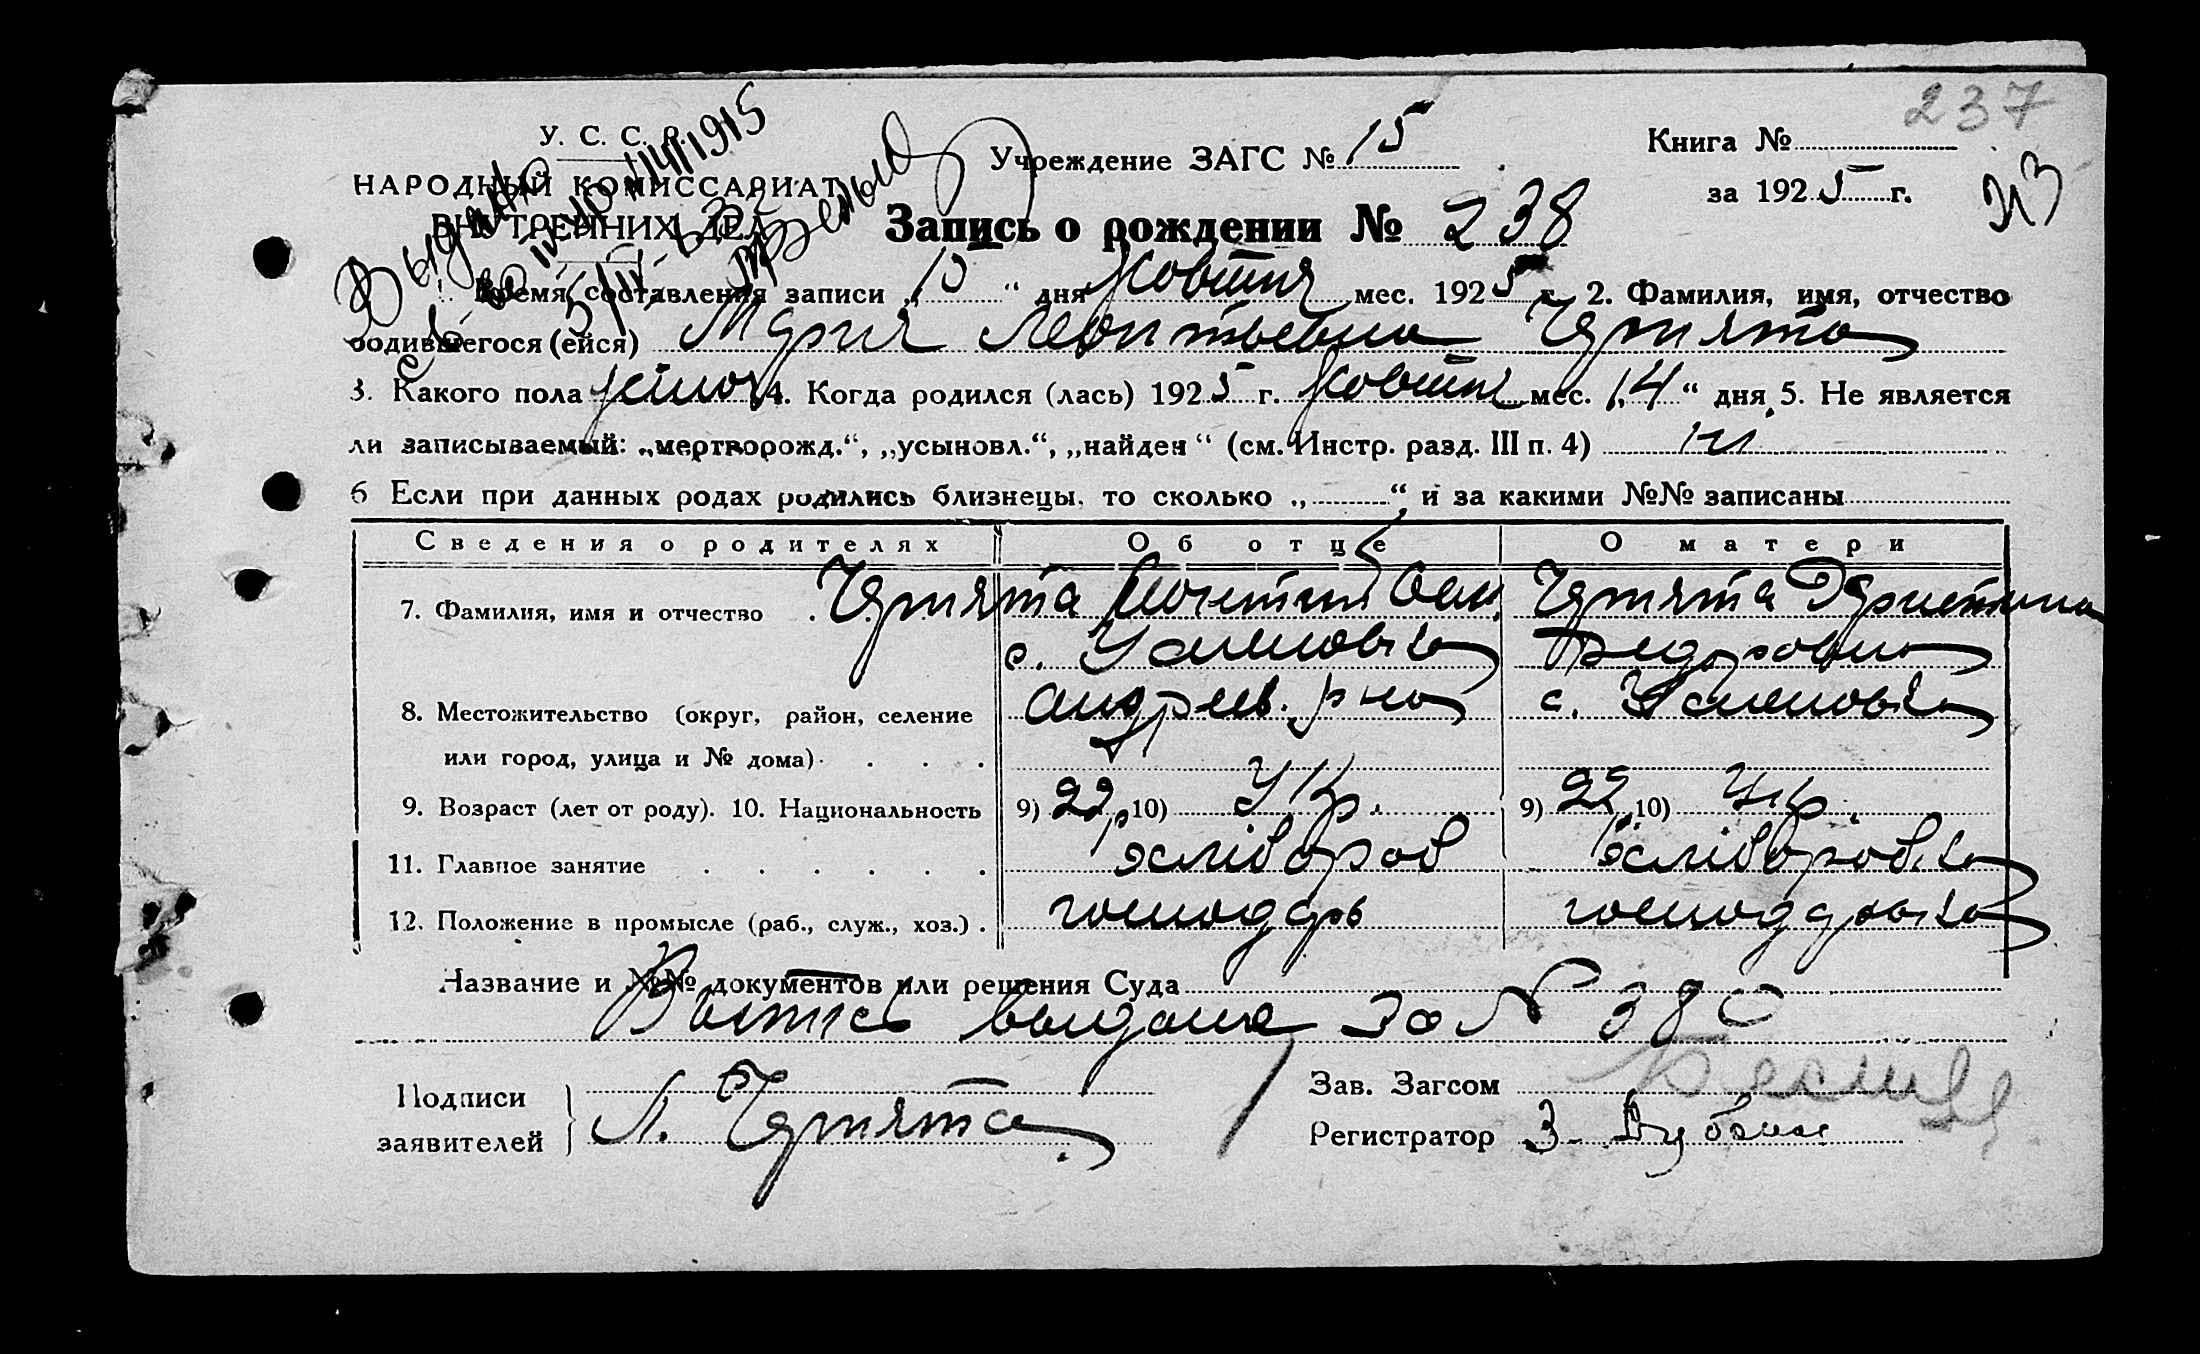 237
У. С. С. Р.
Учреждение ЗАГС № 15
Книга №
НАРОДНЫЙ КОМИССАРИАТ
за 1925 г.
ВНУТРЕННИХ ДЕЛ
Запись о рождении № 238
Время составления записи „15“ дня Жовтня мес. 1925 г. 2. Фамилия, имя, отчество
родившегося (ейся) Мария Леонтьевна
3. Какого пола жіноч 4. Когда родился (лась) 1925 г. Жовтня мес. „14“ дня 5. Не является
ли записываемый: „мертворожд.“, „усыновл.“, „найден“ (см. Инстр. разд. III п. 4) ні
6 Если при данных родах родились близнецы, то сколько „ “, и за какими №№ записаны
Сведения о родителях Об отце О матери
7. Фамилия, имя и отчество
с. Успеновка Федоровна
8. Местожительство (округ, район, селение Андреев. р-на с. Успеновка
или город, улица и № дома)
9. Возраст (лет от роду). 10. Национальность 9) 22 10) Укр. 9) 22 10) Укр.
11. Главное занятие хлібороб хліборобка
12. Положение в промысле (раб., служ., хоз.) господарь господарька
Название и №№ документов или решения Суда
Выпись выдана за № 380
Подписи
заявителей
Зав. Загсом
Регистратор З.